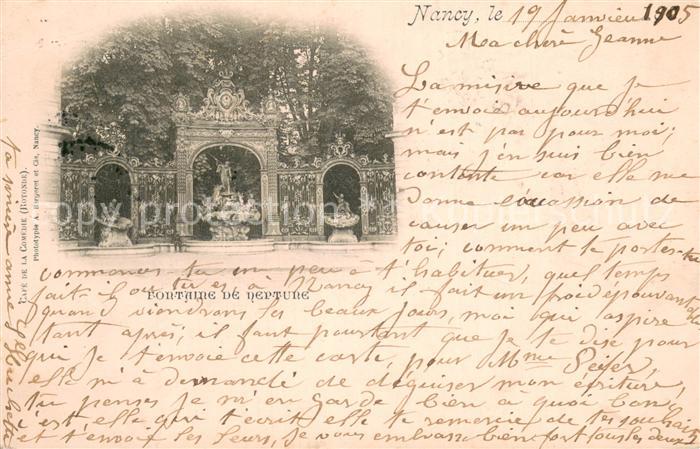 Nancy, le 19 Janvier 1905
Ma chère Jeanne
La misive que je
t'envoie aujourd'hui
n'est pas pour moi;
mais j'en suis bien
contente car elle me
donne l'occasion de
causer un peu avec
toi; comment te portes-tu
commences tu un peu à t'habituer, quel temps
fait-il où tu es, à Nancy il fait un froid épouvantable
quand viendront les beaux jours, moi qui aspire
tant après, il faut pourtant que je te dise pour
qui je t'envoie cette carte, pour Mme
elle m'a demandé de déguiser mon écriture,
tu penses je m'en garde bien à quoi bon,
c'est elle qui t'écrit elle te remercie de tes souhaits
et t'envoie les leurs, je vous embrasse bien fort tous les deux
ta amie
FONTAINE DE NEPTUNE
CAFÉ DE LA COMÉDIE (ROTONDE).
Phototypie A. Bergeret et Cie, Nancy.